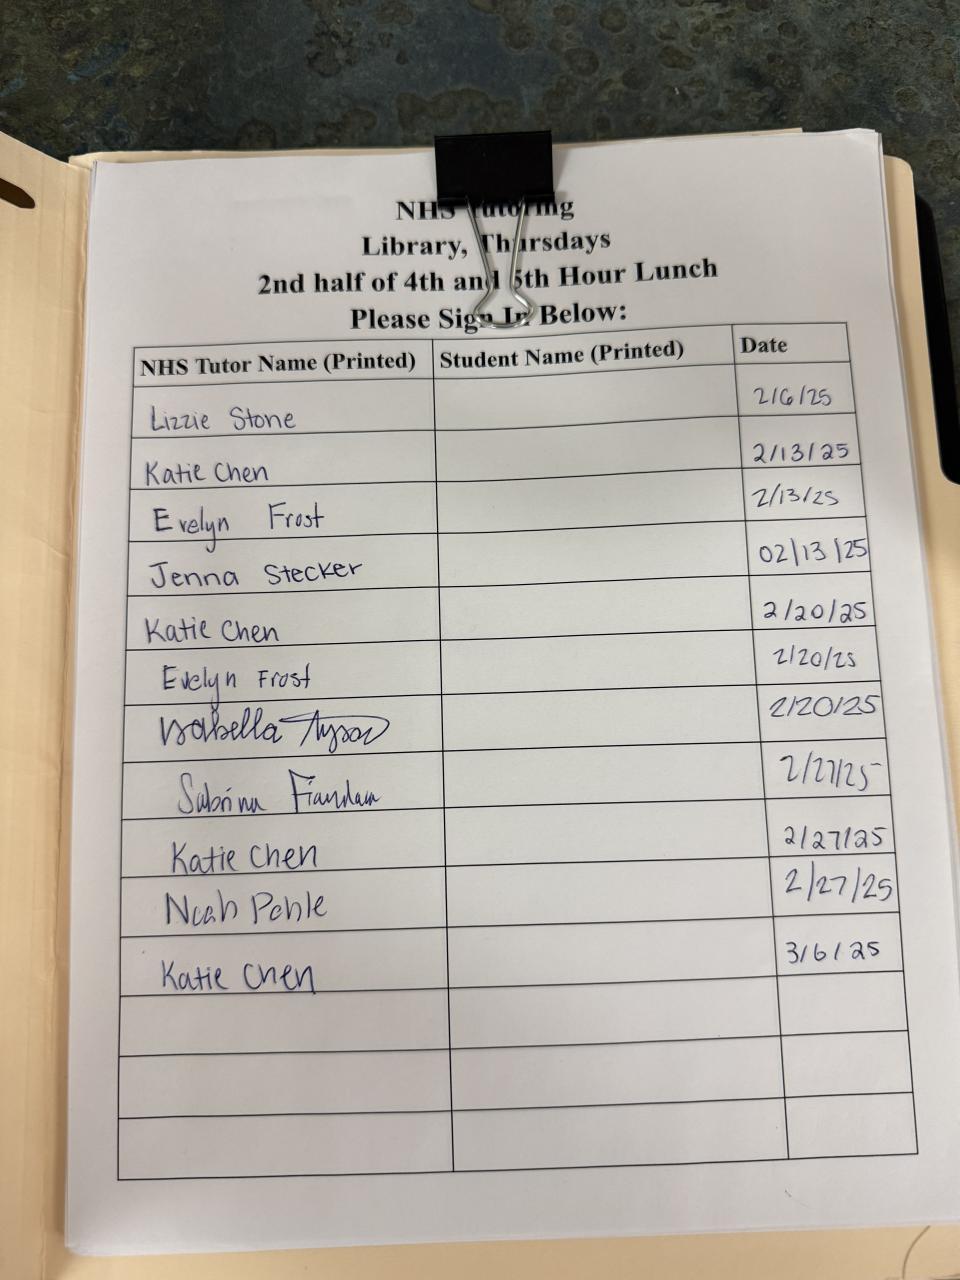 NHS Tutoring
Library, Thursdays
2nd half of 4th and 5th Hour Lunch
Please Sign In Below:
NHS Tutor Name (Printed) Student Name (Printed) Date
Lizzie Stone 2/6/25
Katie Chen 2/13/25
Evelyn Frost 2/13/25
Jenna Stecker 02/13/25
Katie Chen 2/20/25
Evelyn Frost 2/20/25
Isabella 2/20/25
Sabrina 2/27/25
Katie Chen 2/27/25
Noah Pohle 2/27/25
Katie Chen 3/6/25